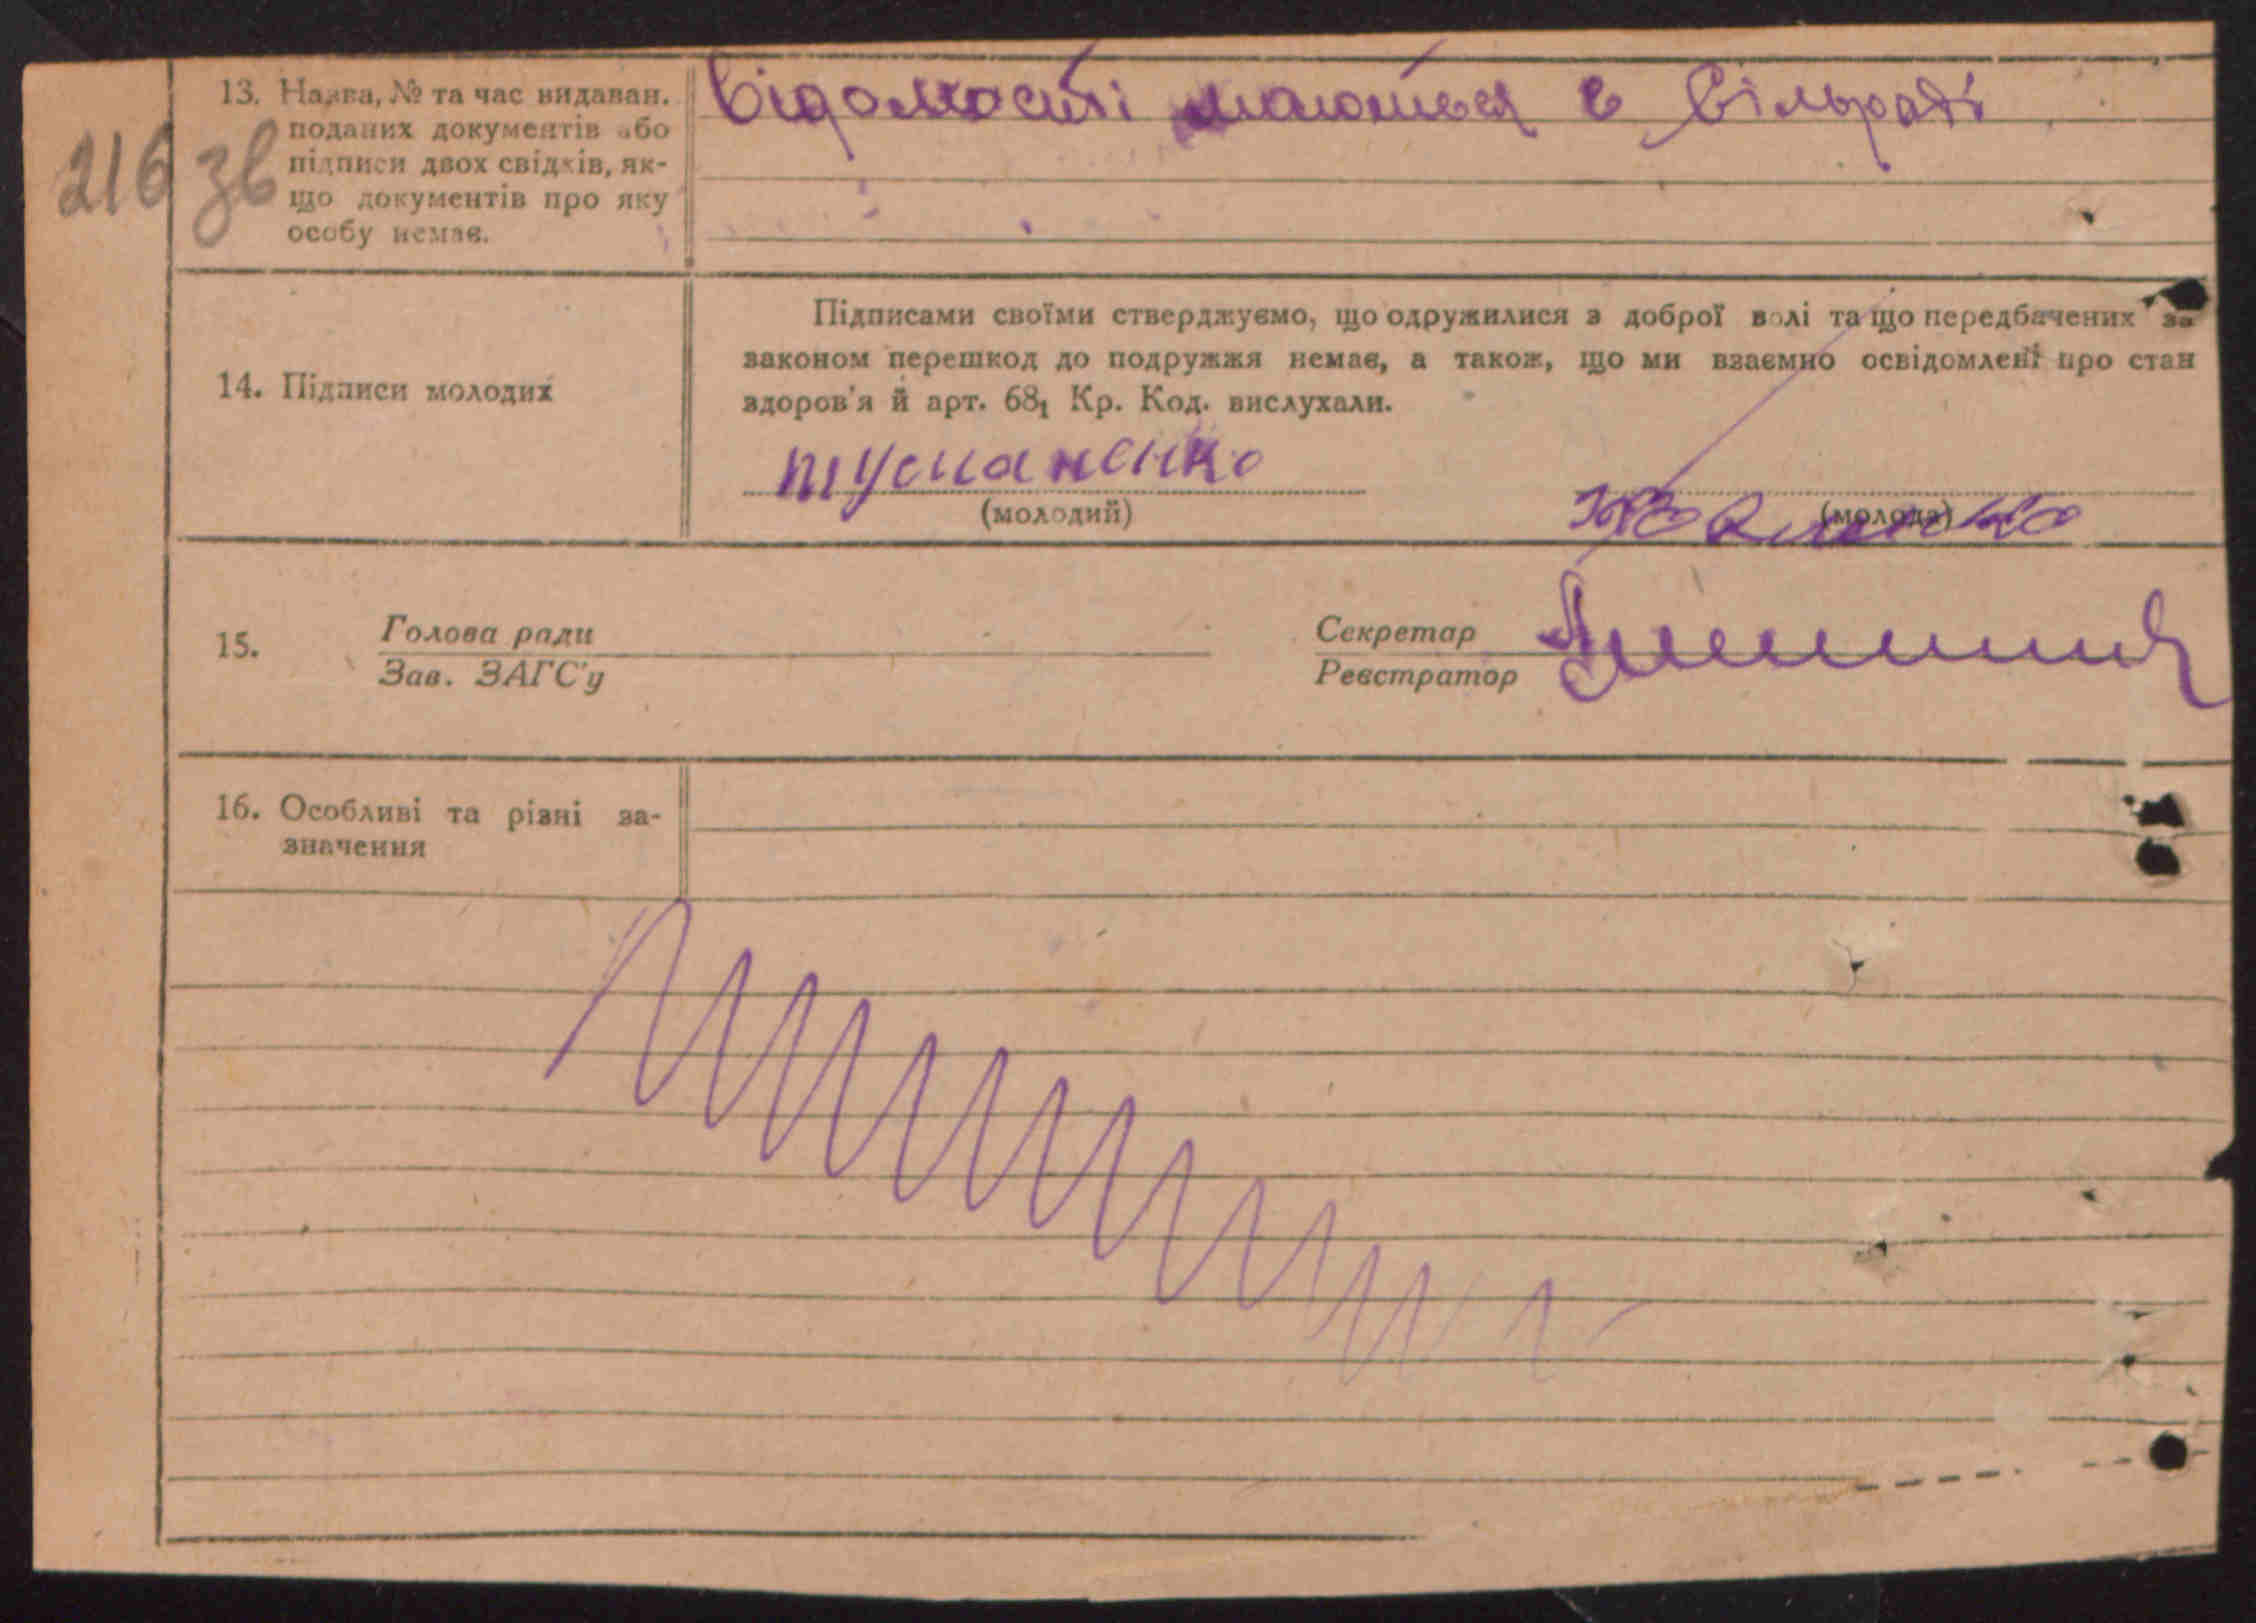 216 зв
13. Назва, № та час видаван.
поданих документів або
підписи двох свідків, як-
що документів про яку
особу немає.
відомості маються в сільраді
14. Підписи молодих
Підписами своїми стверджуємо, що одружилися з доброї волі та що передбачених за
законом перешкод до подружжя немає, а також, що ми взаємно освідомлені про стан
здоров'я й арт. 68₁ Кр. Код. вислухали.
(молодий)
(молода)
15.
Голова ради
Зав. ЗАГС'у
Секретар
Реєстратор
16. Особливі та різні за-
значення